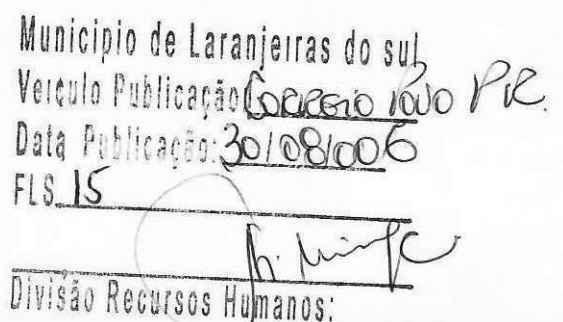 Municipio de Laranjeiras do sul
Veiculo Publicação CORREIO POVO PR.
Data Publicação: 30/08/006
FLS 15
Divisão Recursos Humanos: